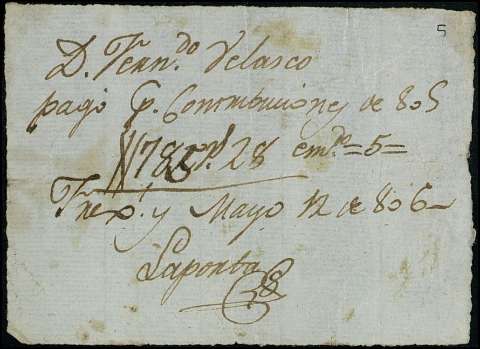 5
D. Fern.do Velasco
pagó p. Contribuciones de 805
28 =5=
y Mayo 12 de 806
Laporta